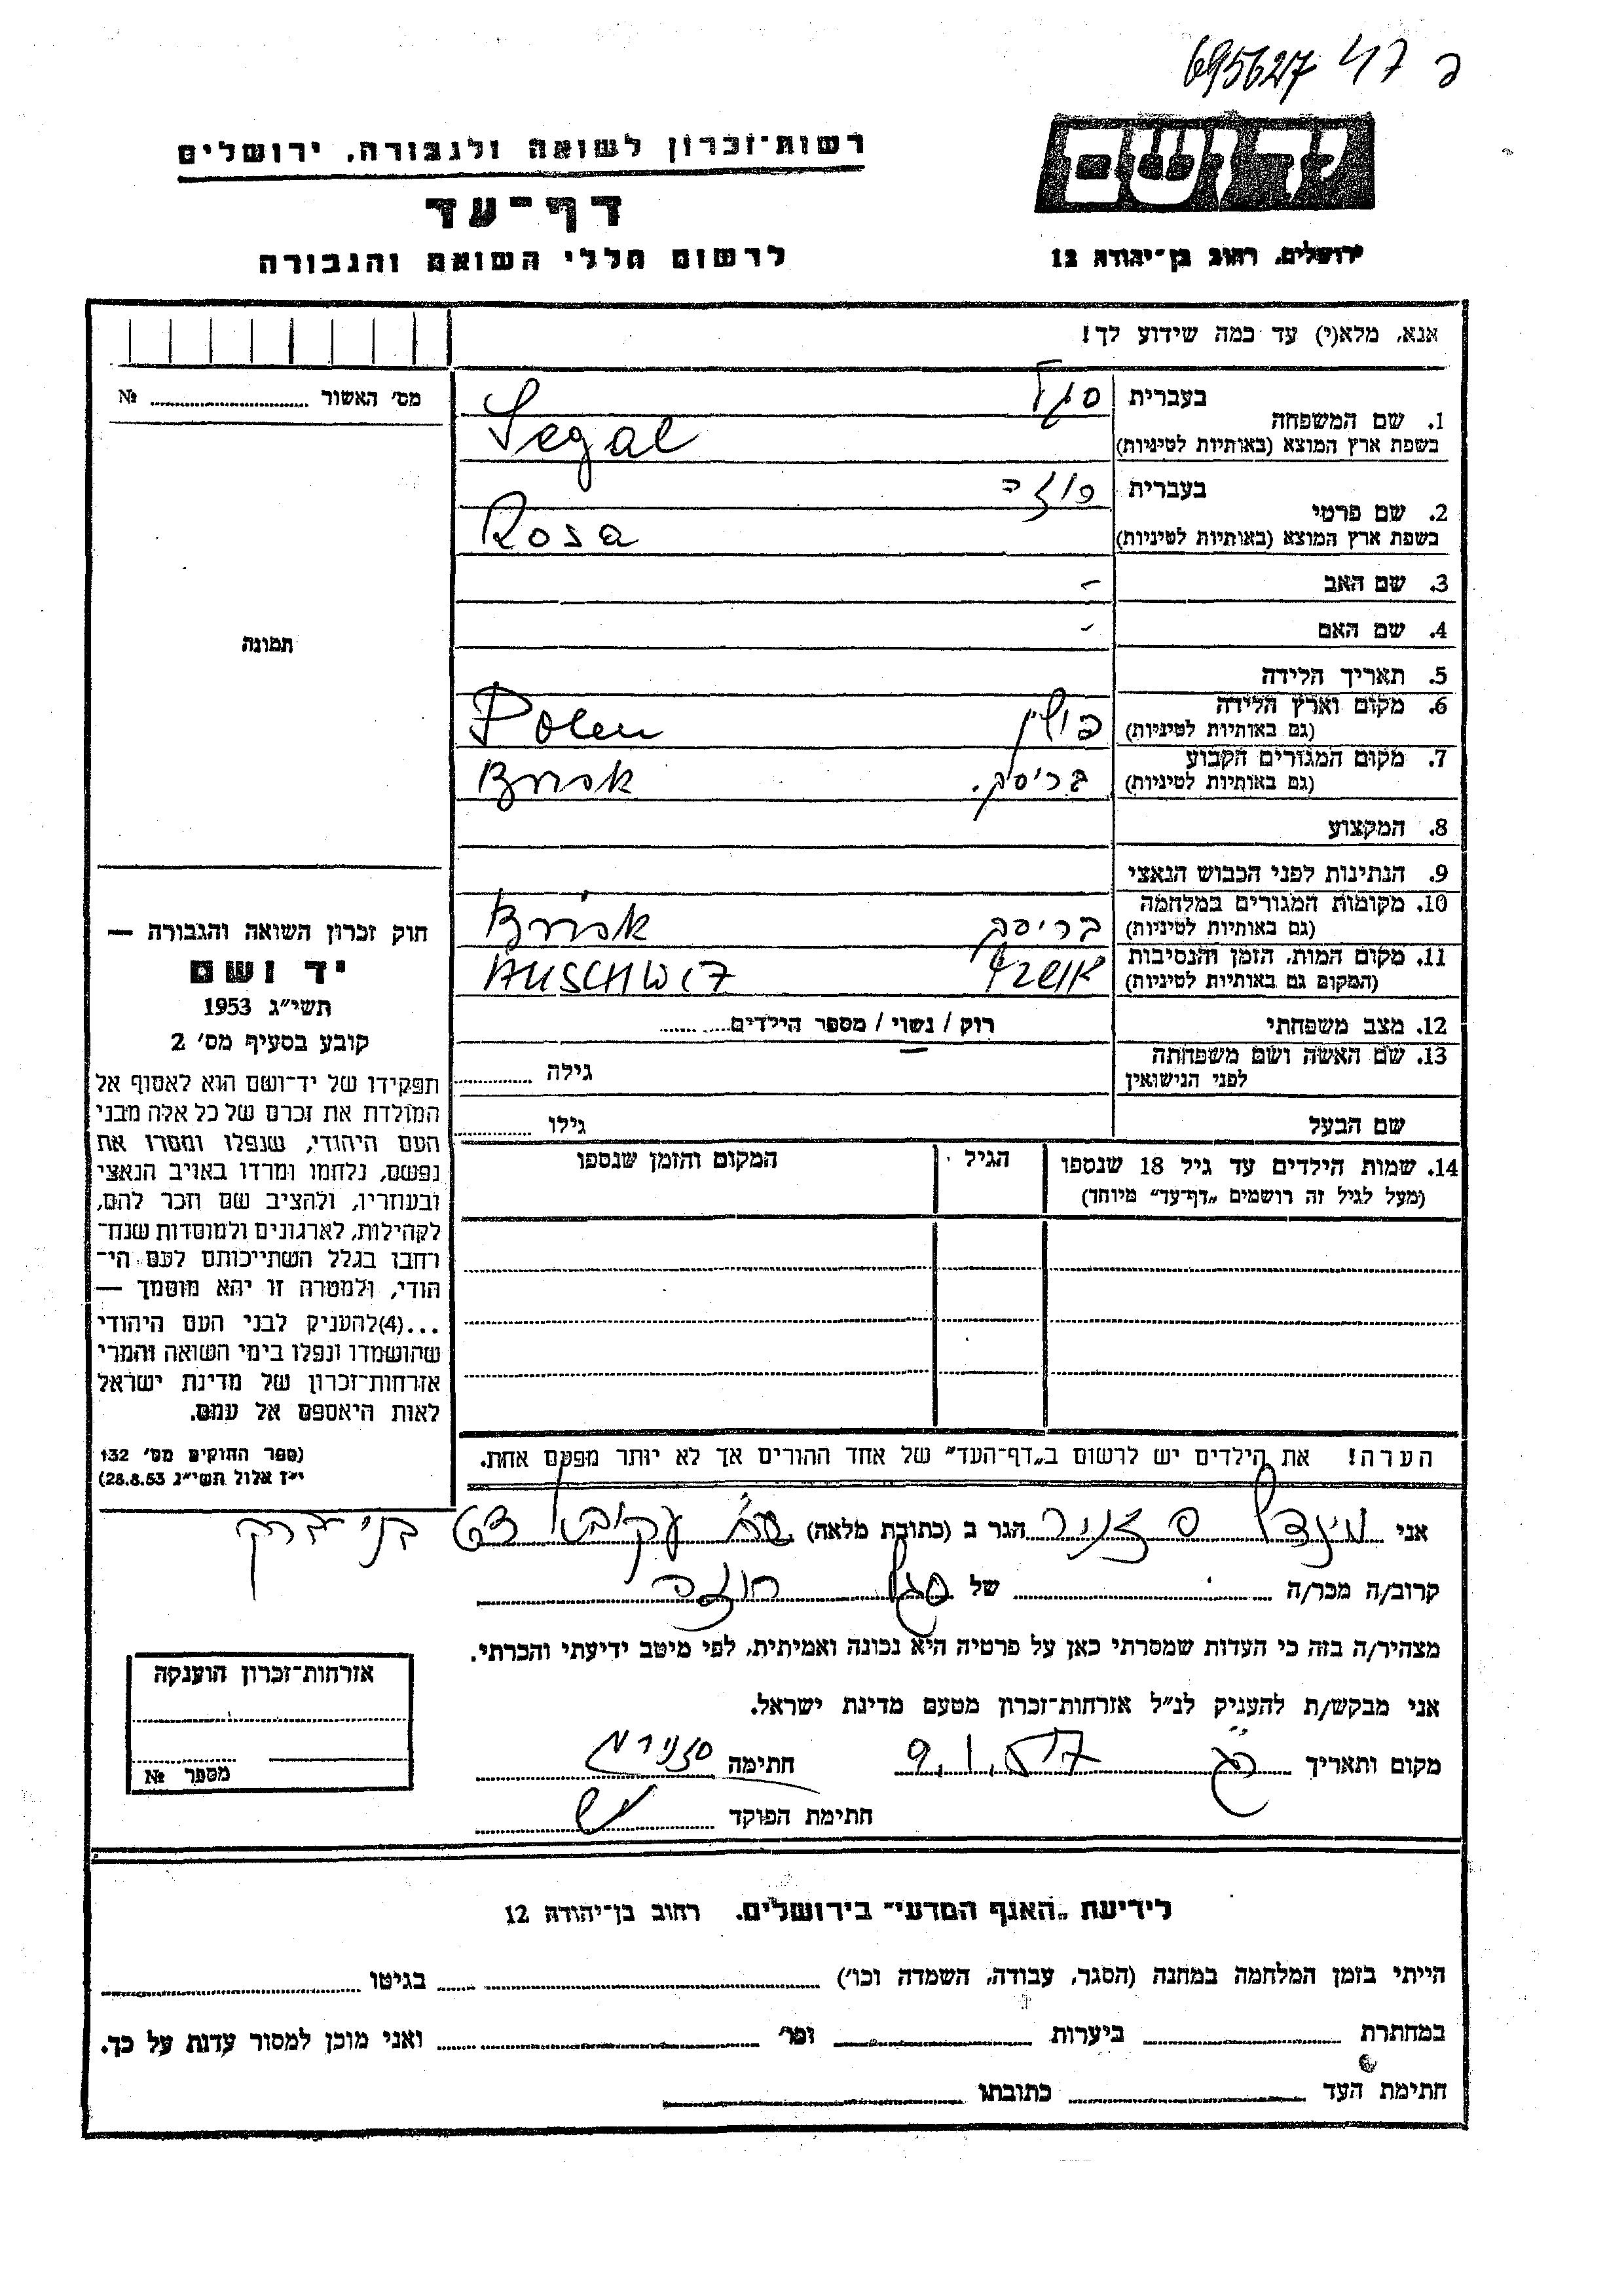 695627 47
יד ושם
רשות-זכרון לשואה ולגבורה, ירושלים
דף-עד
ירושלים, רחוב בן-יהודה 12
לרשום חללי השואה והגבורה
אנא, מלא(י) עד כמה שידוע לך!
מס' האשור № 
1. שם המשפחה
בעברית סגל
בשפת ארץ המוצא (באותיות לטיניות) Segal
2. שם פרטי
בעברית רוזה
בשפת ארץ המוצא (באותיות לטיניות) Rosa
3. שם האב -
4. שם האם -
תמונה
5. תאריך הלידה
6. מקום וארץ הלידה
(גם באותיות לטיניות) פולין Polen
7. מקום המגורים הקבוע
(גם באותיות לטיניות) בריסק. Brisk
8. המקצוע
9. הנתינות לפני הכבוש הנאצי
10. מקומות המגורים במלחמה
(גם באותיות לטיניות) בריסק Brisk
11. מקום המות, הזמן והנסיבות
(המקום גם באותיות לטיניות) AUSCHWITZ
12. מצב משפחתי רוק / נשוי / מספר הילדים
13. שם האשה ושם משפחתה
לפני הנישואין גילה
שם הבעל גילו
14. שמות הילדים עד גיל 18 שנספו הגיל המקום והזמן שנספו
(מעל לגיל זה רושמים „דף-עד" מיוחד)
חוק זכרון השואה והגבורה —
יד ושם
תשי"ג 1953
קובע בסעיף מס' 2
תפקידו של יד-ושם הוא לאסוף אל
המולדת את זכרם של כל אלה מבני
העם היהודי, שנפלו ומסרו את
נפשם, נלחמו ומרדו באויב הנאצי
ובעוזריו, ולהציב שם וזכר להם,
לקהילות, לארגונים ולמוסדות שנח-
רחבו בגלל השתייכותם לעם הי-
הודי, ולמטרה זו יהא מוסמך —
...(4)להעניק לבני העם היהודי
שהושמדו ונפלו בימי השואה והמרי
אזרחות-זכרון של מדינת ישראל
לאות היאספם אל עמם.
(ספר החוקים מס' 132
י"ז אלול תשי"ג 28.8.53)
הערה! את הילדים יש לרשום ב„דף-העד" של אחד ההורים אך לא יותר מפעם אחת.
אני הגר ב (כתובת מלאה) עקיבא בני ברק
קרוב/ה מכר/ה של סגל רוזה
מצהיר/ה בזה כי העדות שמסרתי כאן על פרטיה היא נכונה ואמיתית, לפי מיטב ידיעתי והכרתי.
אני מבקש/ת להעניק לנ"ל אזרחות-זכרון מטעם מדינת ישראל.
מקום ותאריך חתימה
חתימת הפוקד
אזרחות-זכרון הוענקה
מספר №
לידיעת „האגף המדעי" בירושלים, רחוב בן-יהודה 12
הייתי בזמן המלחמה במחנה (הסגר, עבודה, השמדה וכו') בגיטו
במחתרת ביערות וכו' ואני מוכן למסור עדות על כך.
חתימת העד כתובתו